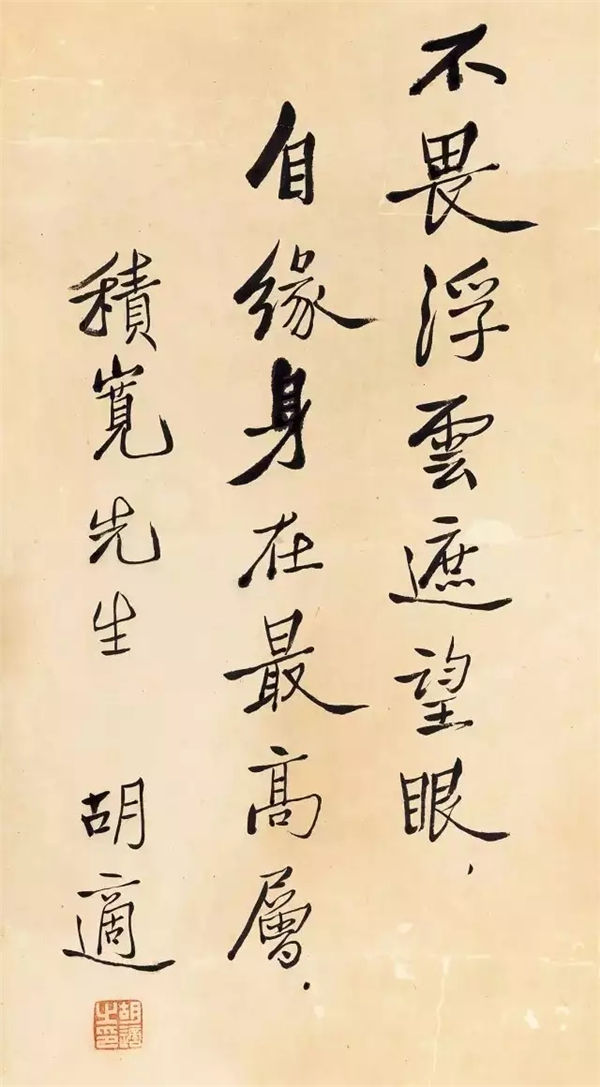 不畏浮雲遮望眼，
自緣身在最高層．
積寬先生 胡適
胡適之印